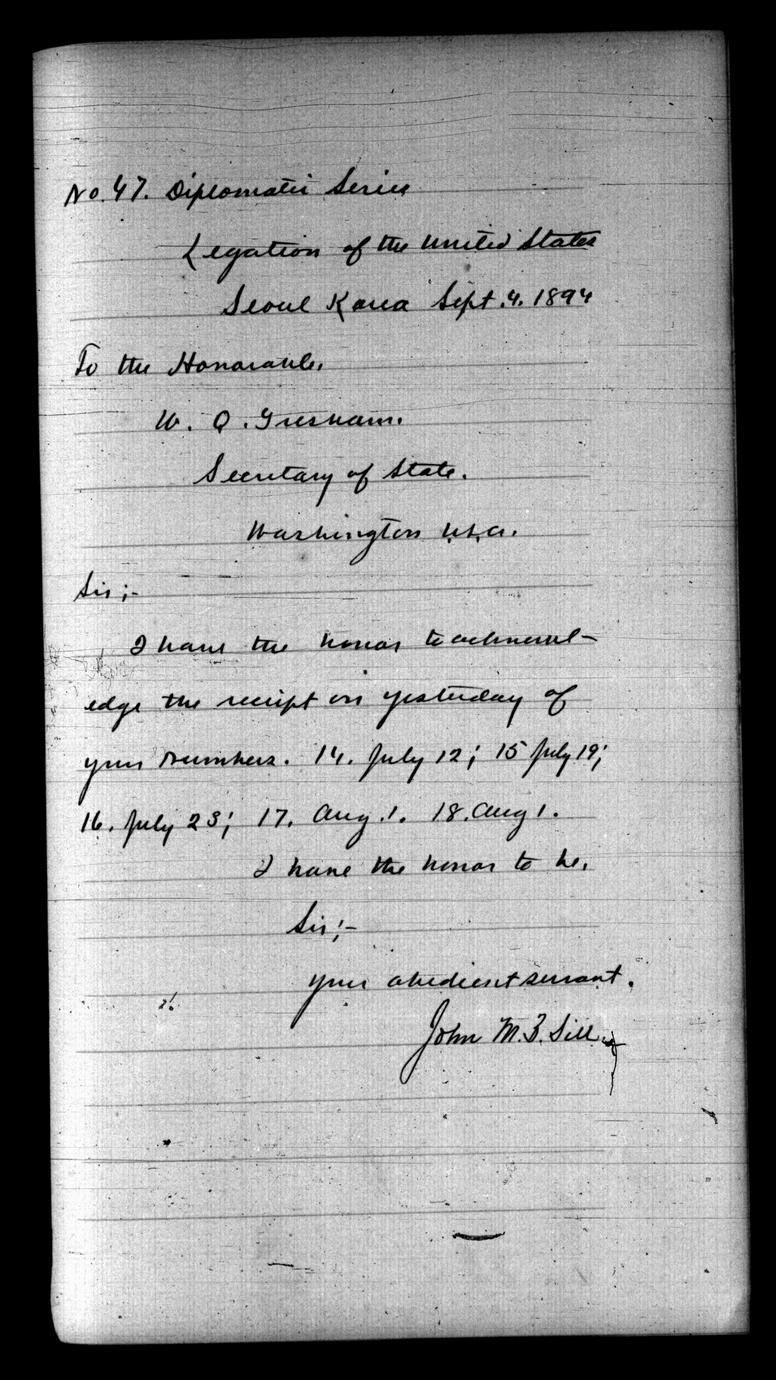 No. 47. Diplomatic Series
Legation of the United States
Seoul Korea Sept. 4. 1894
To the Honorable,
W. Q. Gresham.
Secretary of State.
Washington U.S.A.
Sir;-
I have the honor to acknowl-
edge the receipt on yesterday of
your numbers. 14. July 12; 15 July 19;
16. July 23; 17. Aug. 1. 18. Aug 1.
I have the honor to be,
Sir;-
your obedient servant.
John M. B. Sill